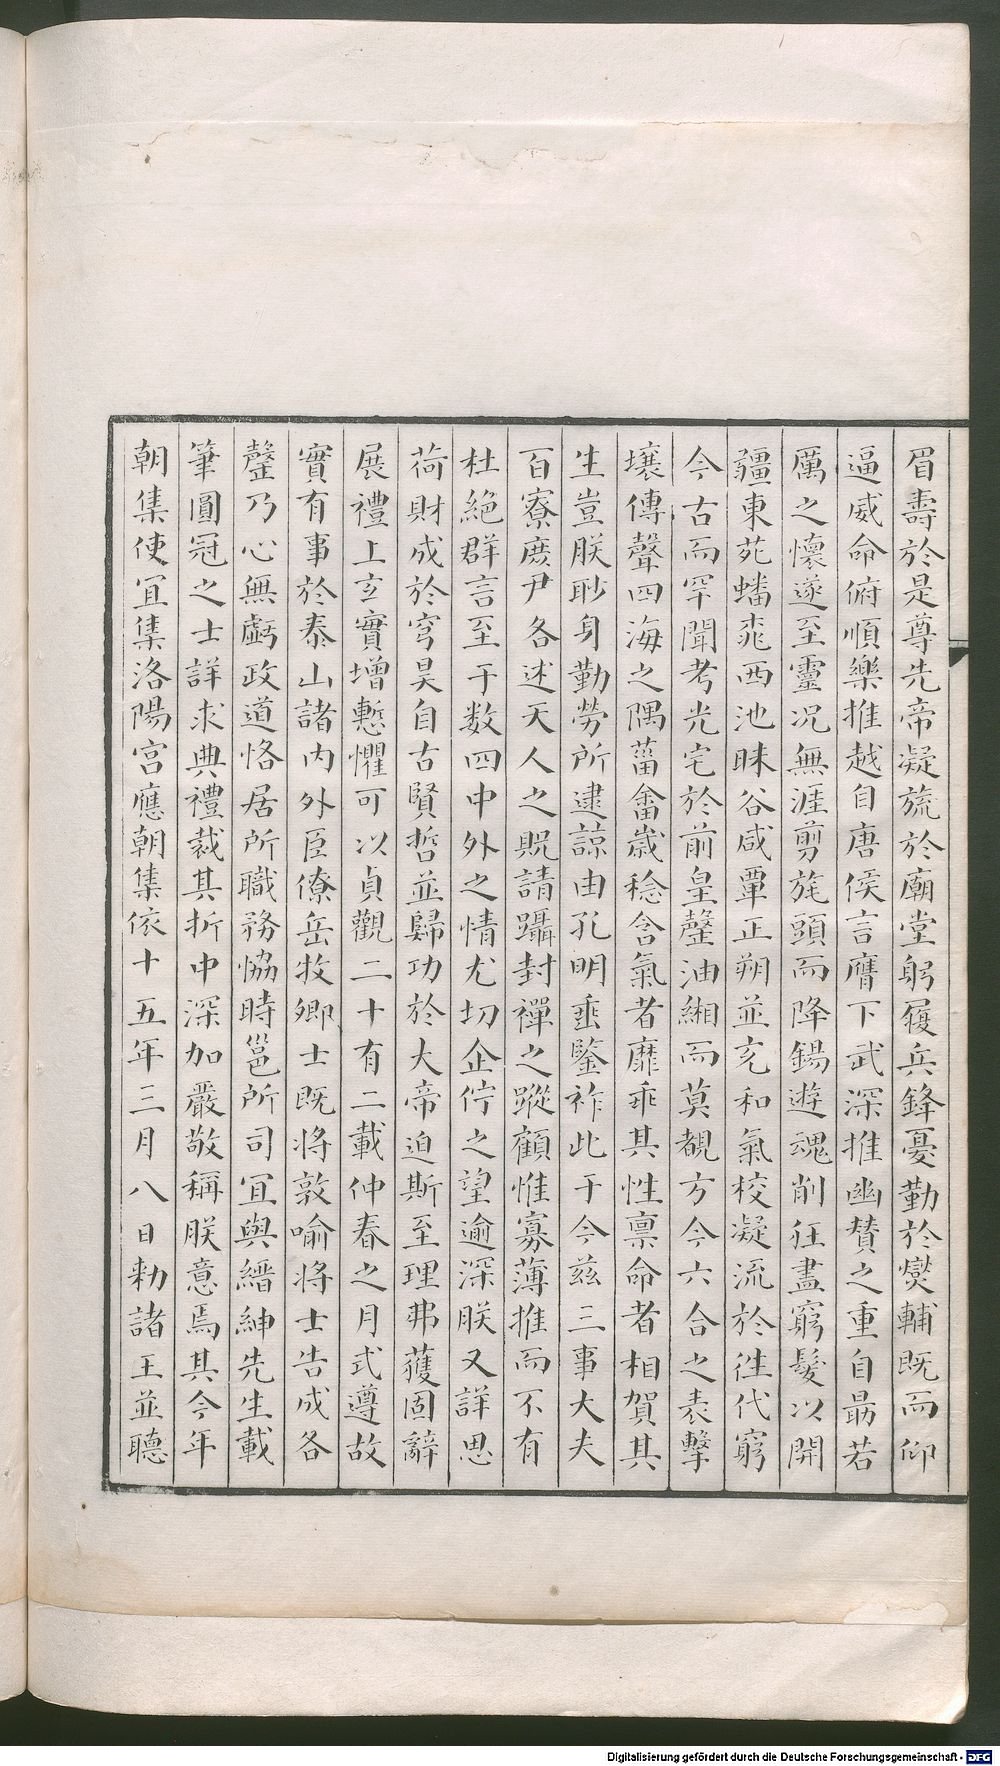 眉壽於是尊先帝凝旒於廟堂躬履兵鋒憂勤於爕輔既而仰
逼威命俯順樂推越自唐侯言膺下武深推幽賛之重自勗若
厲之懷遂至靈况無涯剪旄頭而降錫遊魂削衽盡窮髮以開
疆東苑蟠桃西池昧谷咸覃正朔並充和氣校凝流於徃代窮
今古而罕聞考光宅於前皇罄油緗而莫覩方今六合之表擊
壤傳聲四海之隅菑畬歲稔含氣者靡乖其性禀命者相賀其
生豈朕眇身勤勞所逮諒由孔明垂鑒祚此于今茲三事大夫
百寮庶尹各述天人之貺請躡封禪之蹤顧惟寡薄推而不有
杜絶群言至于数四中外之情尤切企佇之望逾深朕又詳思
荷財成於穹昊自古賢哲並歸功於大帝迫斯至理弗獲固辭
展禮上玄實增慙懼可以貞觀二十有二載仲春之月式遵故
實有事於泰山諸内外臣僚岳牧卿士既將敦喻將士告成各
罄乃心無虧政道恪居所職務恊時邕所司宜與縉紳先生載
筆圓冠之士詳求典禮裁其折中深加嚴敬稱朕意焉其今年
朝集使宜集洛陽宫應朝集依十五年三月八日勑諸王並聽
Digitalisierung gefördert durch die Deutsche Forschungsgemeinschaft - DFG